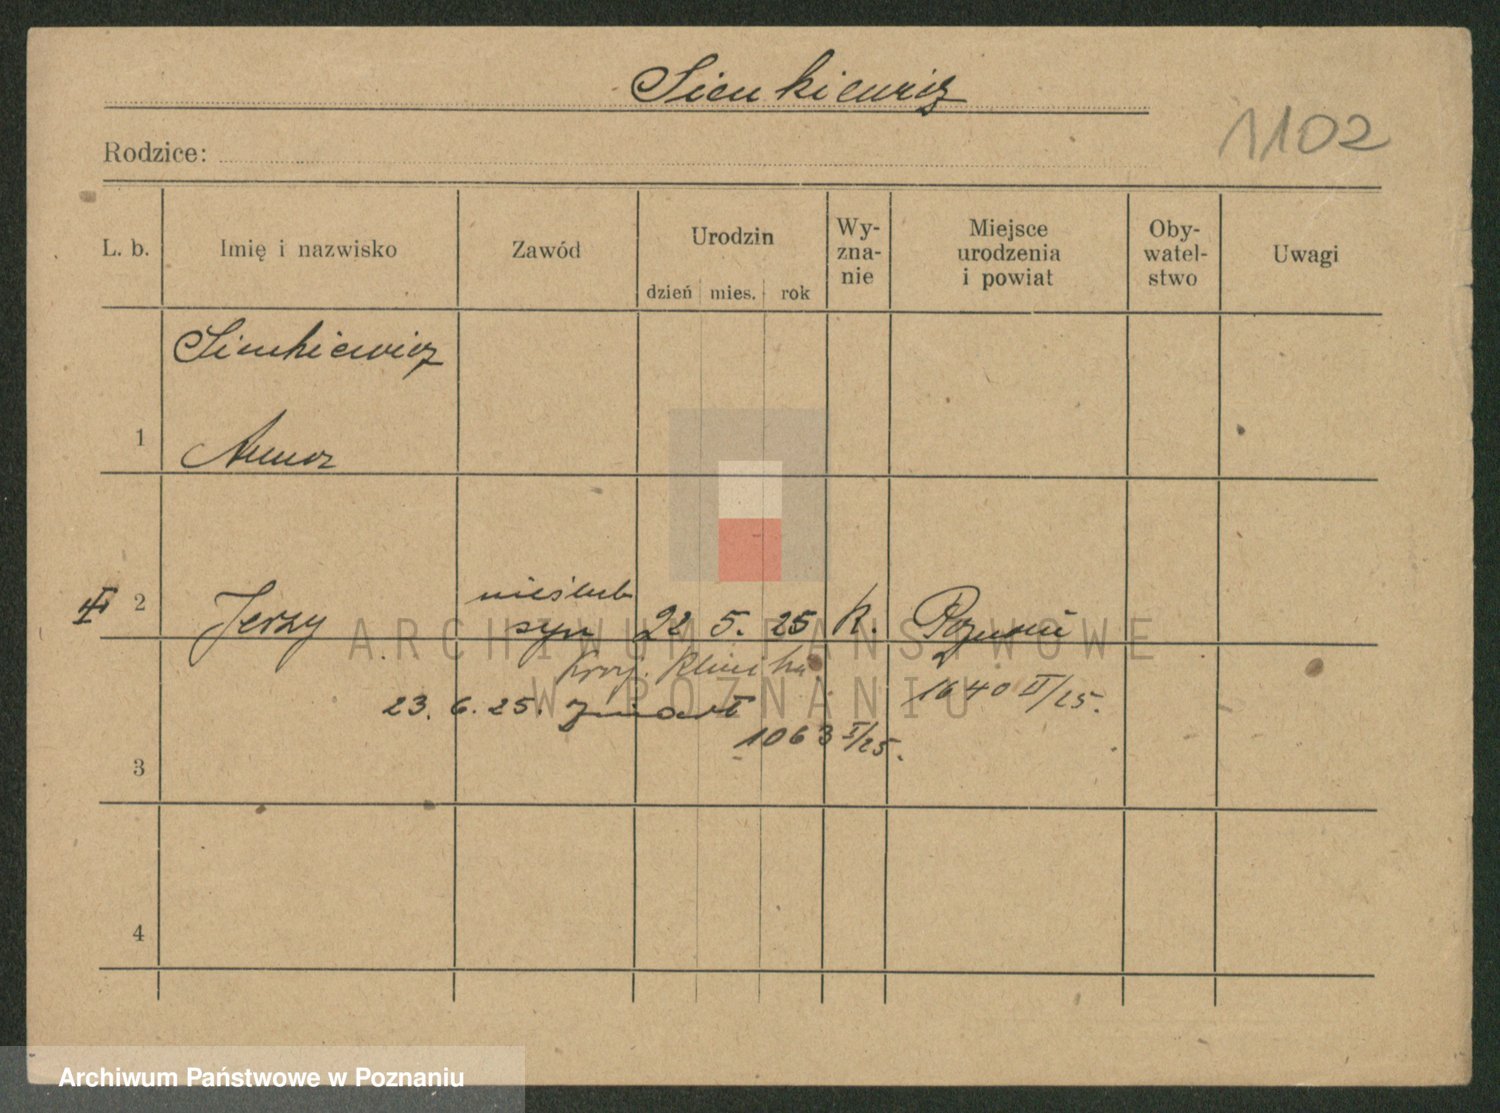 Sienkiewicz
1102
Rodzice:
L. b.
Imię i nazwisko
Zawód
Urodzin
dzień mies. rok
Wy-
zna-
nie
Miejsce
urodzenia
i powiat
Oby-
watel-
stwo
Uwagi
Sienkiewicz
1
2 Jerzy nieślub
syn 22 5. 25 k. Poznań
Klinika
1640 II/25.
23. 6. 25. zmarł
1063 I/25.
3
4
ARCHIWUM PAŃSTWOWE
W POZNANIU
Archiwum Państwowe w Poznaniu